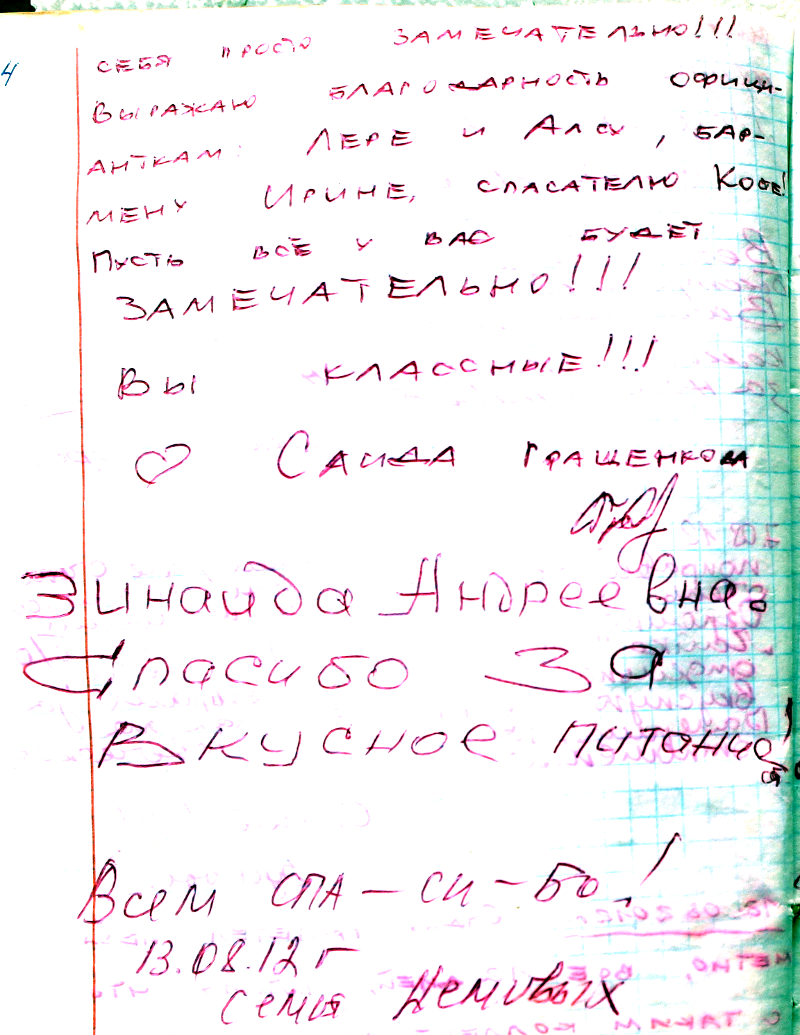 4
СЕБЯ ПРОСТО ЗАМЕЧАТЕЛЬНО!!!
ВЫРАЖАЮ БЛАГОДАРНОСТЬ ОФИЦИ-
АНТКАМ: ЛЕРЕ И АЛСУ, БАР-
МЕНУ ИРИНЕ, СПАСАТЕЛЮ КОСТЕ!
ПУСТЬ ВСЁ У ВАС БУДЕТ
ЗАМЕЧАТЕЛЬНО!!!
ВЫ КЛАССНЫЕ!!!
♡ САИДА ГРАЩЕНКОВА
Зинаида Андреевна.
Спасибо за
Вкусное питание!
Всем СПА-СИ-БО!
13.08.12 г
семья